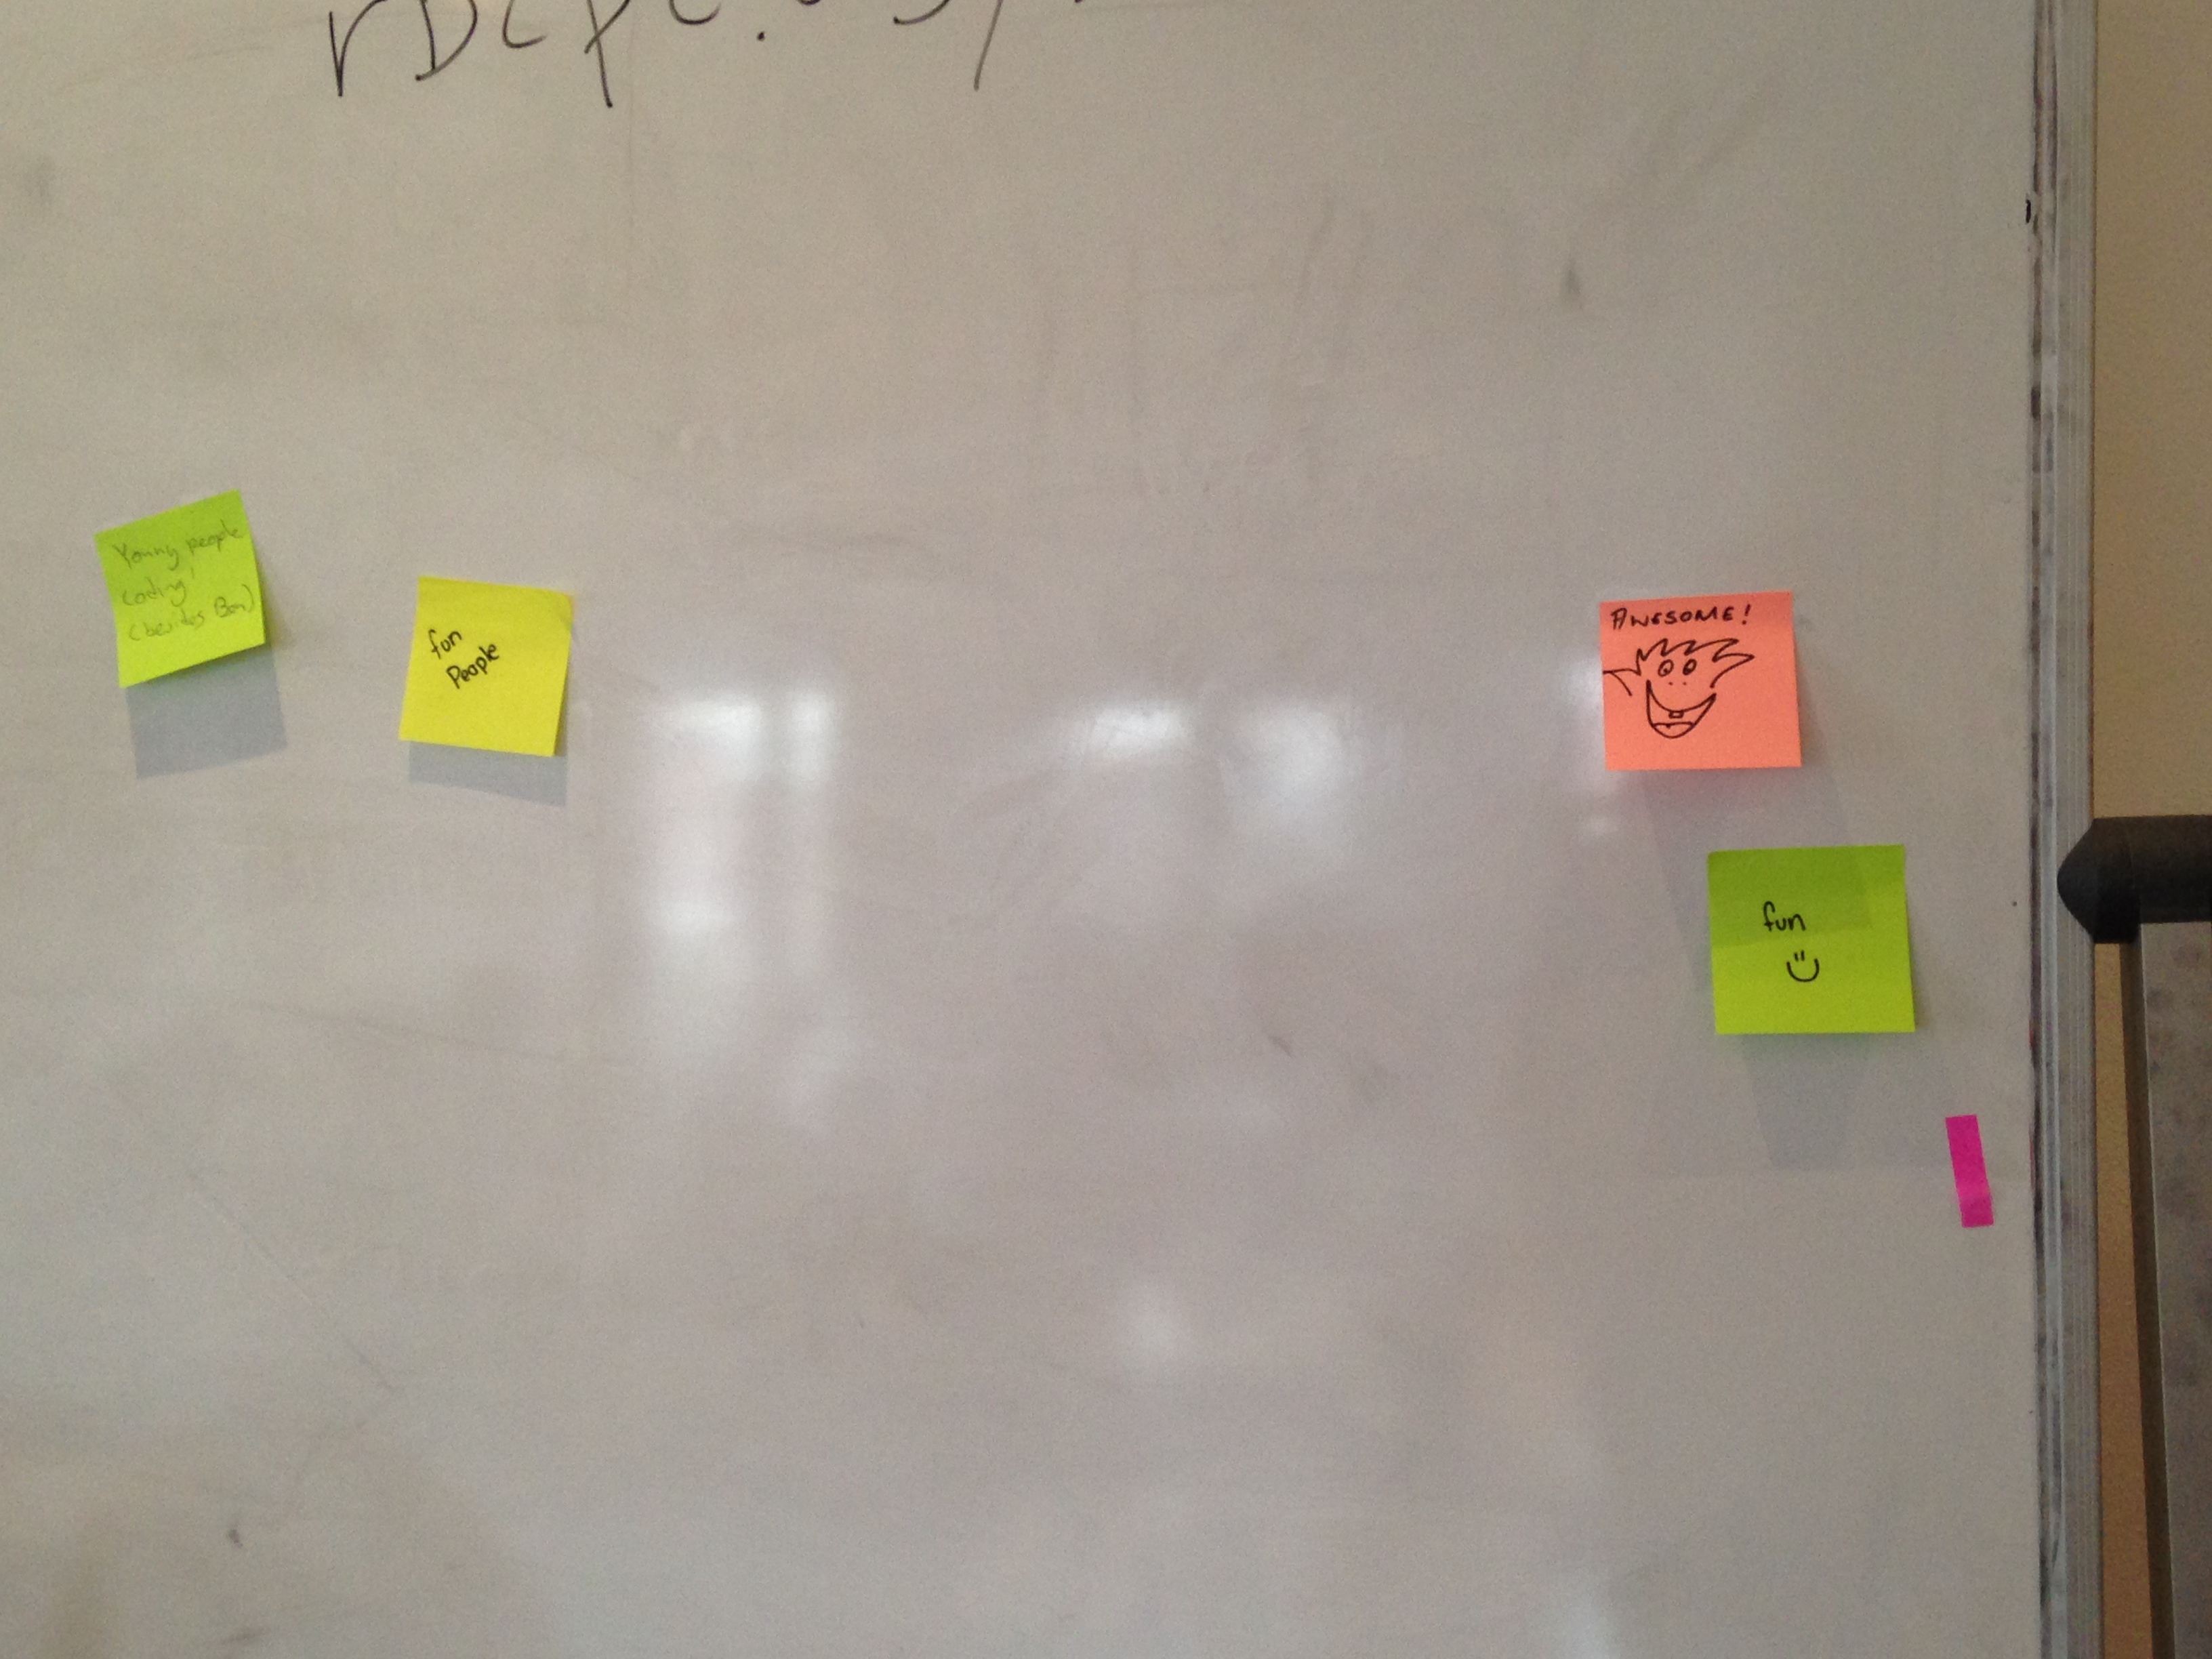 Young people
coding!
(besides Ben)
fun
People
AWESOME!
fun